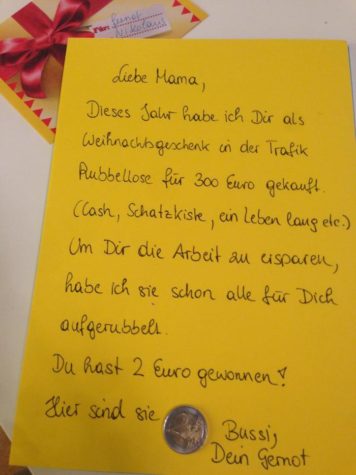 Für:
Sankt
Nikolaus
Liebe Mama,
Dieses Jahr habe ich Dir als
Weihnachtsgeschenk in der Trafik
Rubbellose für 300 Euro gekauft.
(Cash, Schatzkiste, ein Leben lang etc.)
Um Dir die Arbeit zu ersparen,
habe ich sie schon alle für Dich
aufgerubbelt.
Du hast 2 Euro gewonnen!
Hier sind sie
Bussi,
Dein Gernot